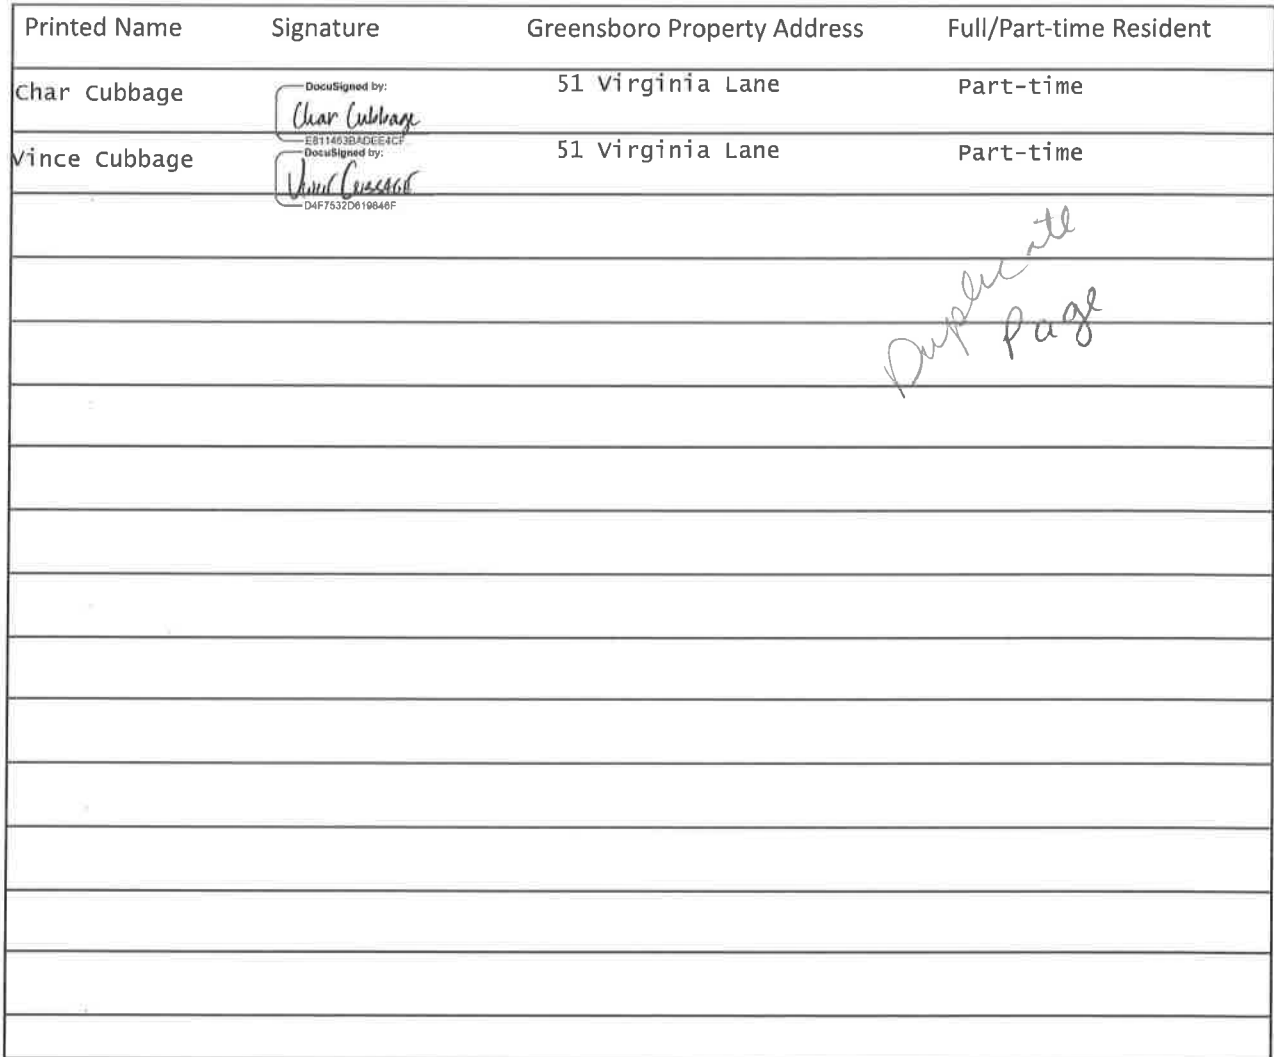 Printed Name Signature Greensboro Property Address Full/Part-time Resident
Char Cubbage DocuSigned by: Char Cubbage E811463BADEE4CF 51 Virginia Lane Part-time
Vince Cubbage DocuSigned by: Vince Cubbage D4F7532D619846F 51 Virginia Lane Part-time
Duplicate
Page